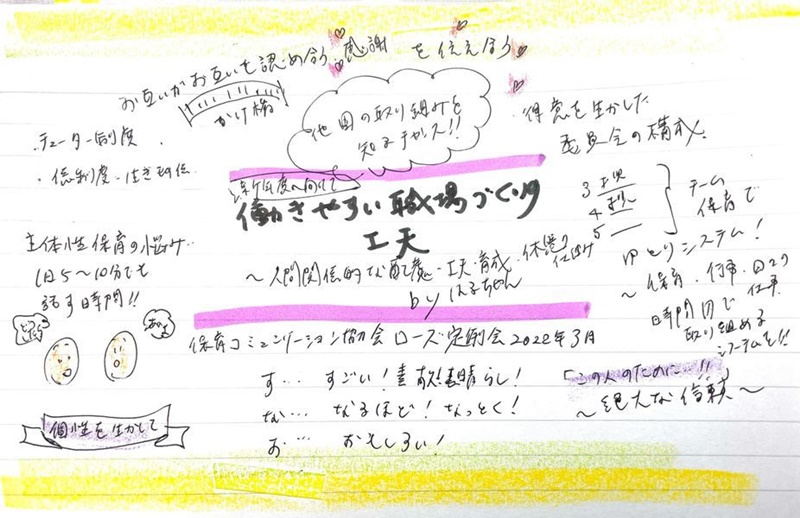 お互いがお互いを認め合う感謝を伝え合う
かけ橋
他園の取り組みを
知るチャンス!!
得意を生かした
委員会の構成
・チューター制度
・係制度・
新年度へ向けて
働きやすい職場づくり
工夫
〜人間関係的な配慮・工夫・育成・休憩の
by はるちゃん
3
4
5
チーム
保育で
ゆとりシステム!
〜保育・行事・日々の
仕事
時間内で
取り組める
システムを!!
主体性保育の悩み
1日5〜10分でも
話す時間!!
個性を生かして
保育コミュニケーション協会 ローズ定例会 2022年3月
す… すごい! 素敵! 素晴らし!
な… なるほど! なっとく!
お… おもしろい!
「この人のために…!!」
〜絶大な信頼〜